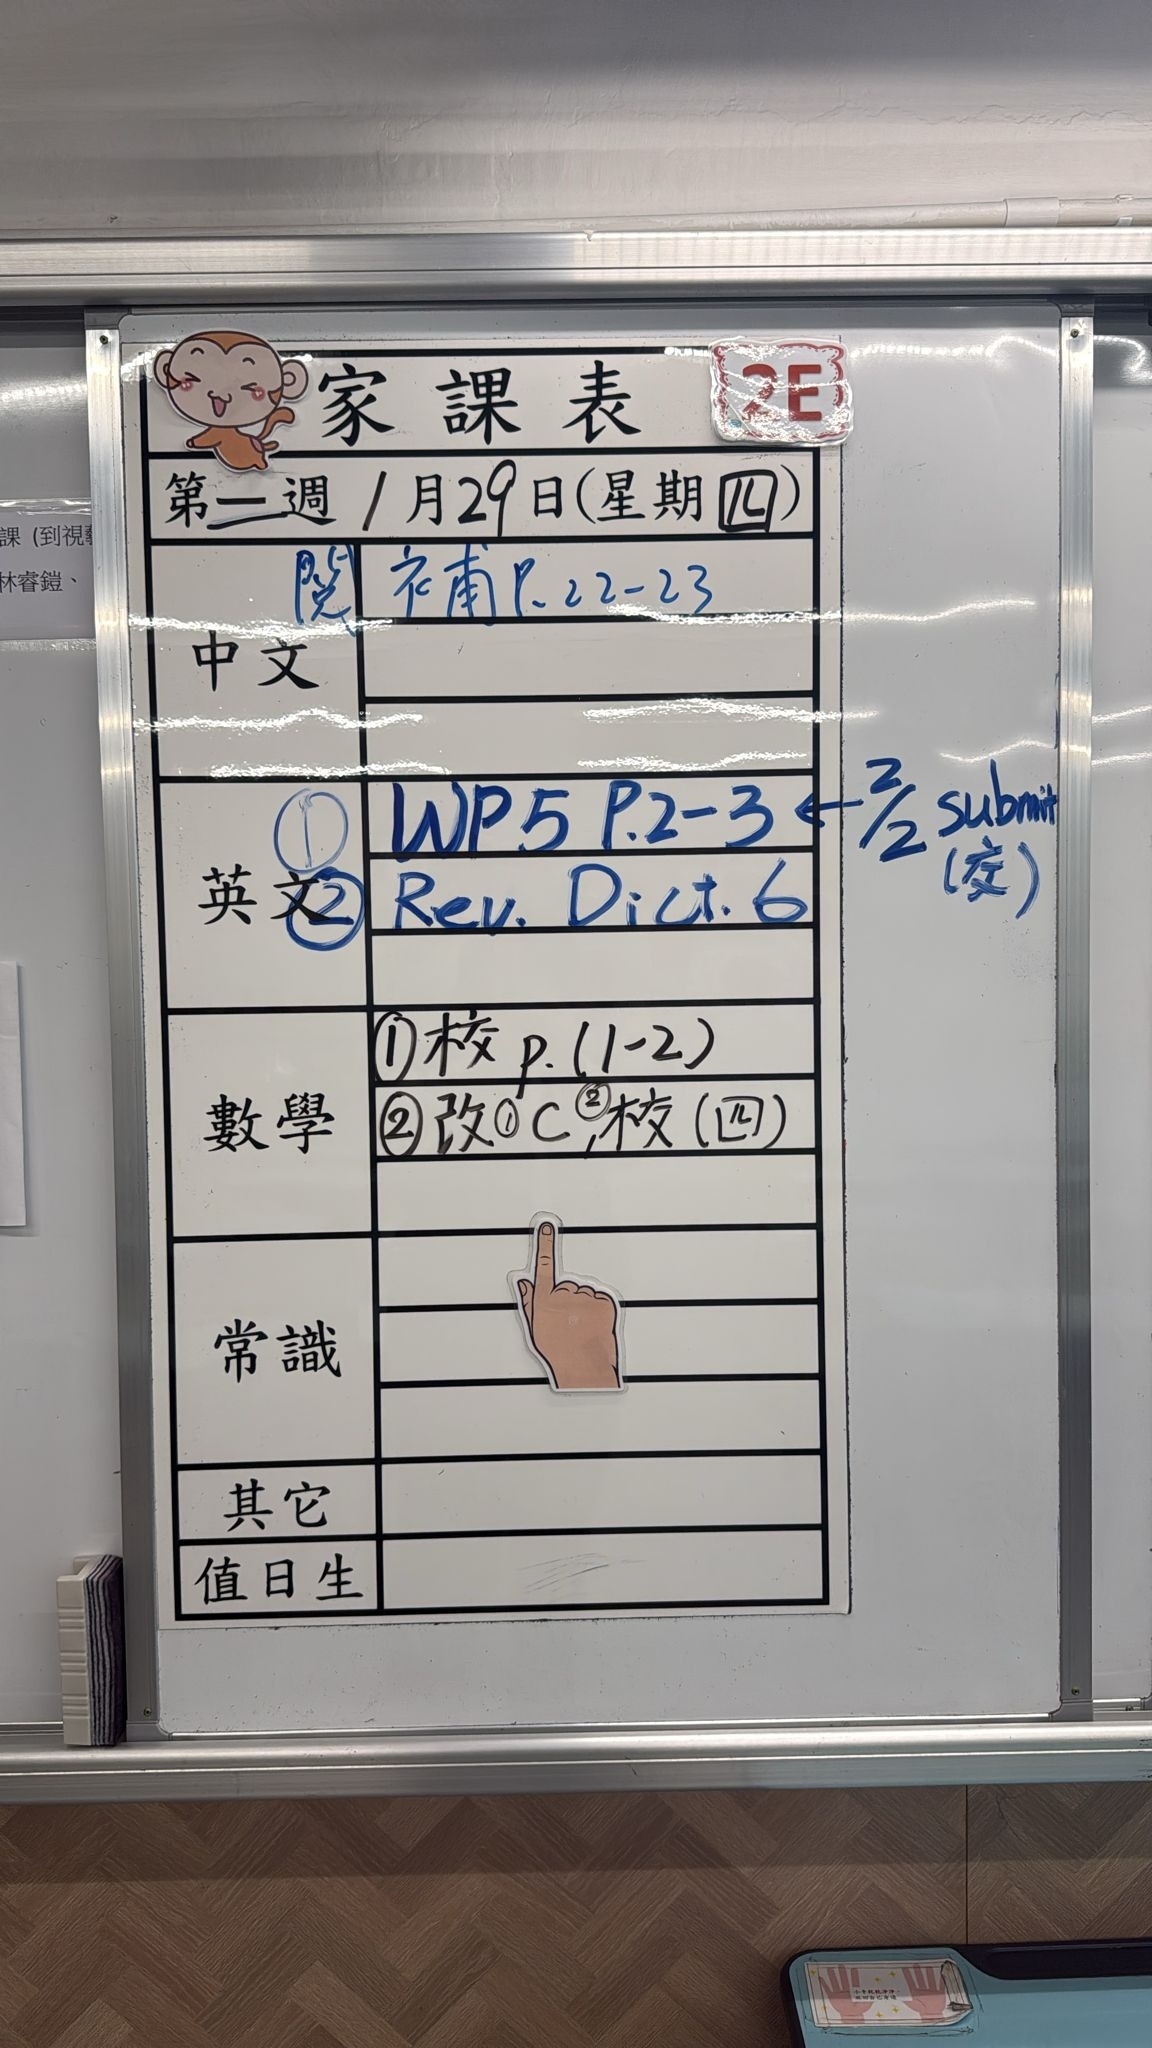 課 (到視
林睿鎧、
家課表 2E
第二週 1月29日(星期四)
中文
閱 補 P.22-23
英文
① WP5 P.2-3 ← 2/2 submit
(交)
② Rev. Dict. 6
數學
① 校 p.(1-2)
② 改 ① C, ② 校 (四)
常識
其它
值日生